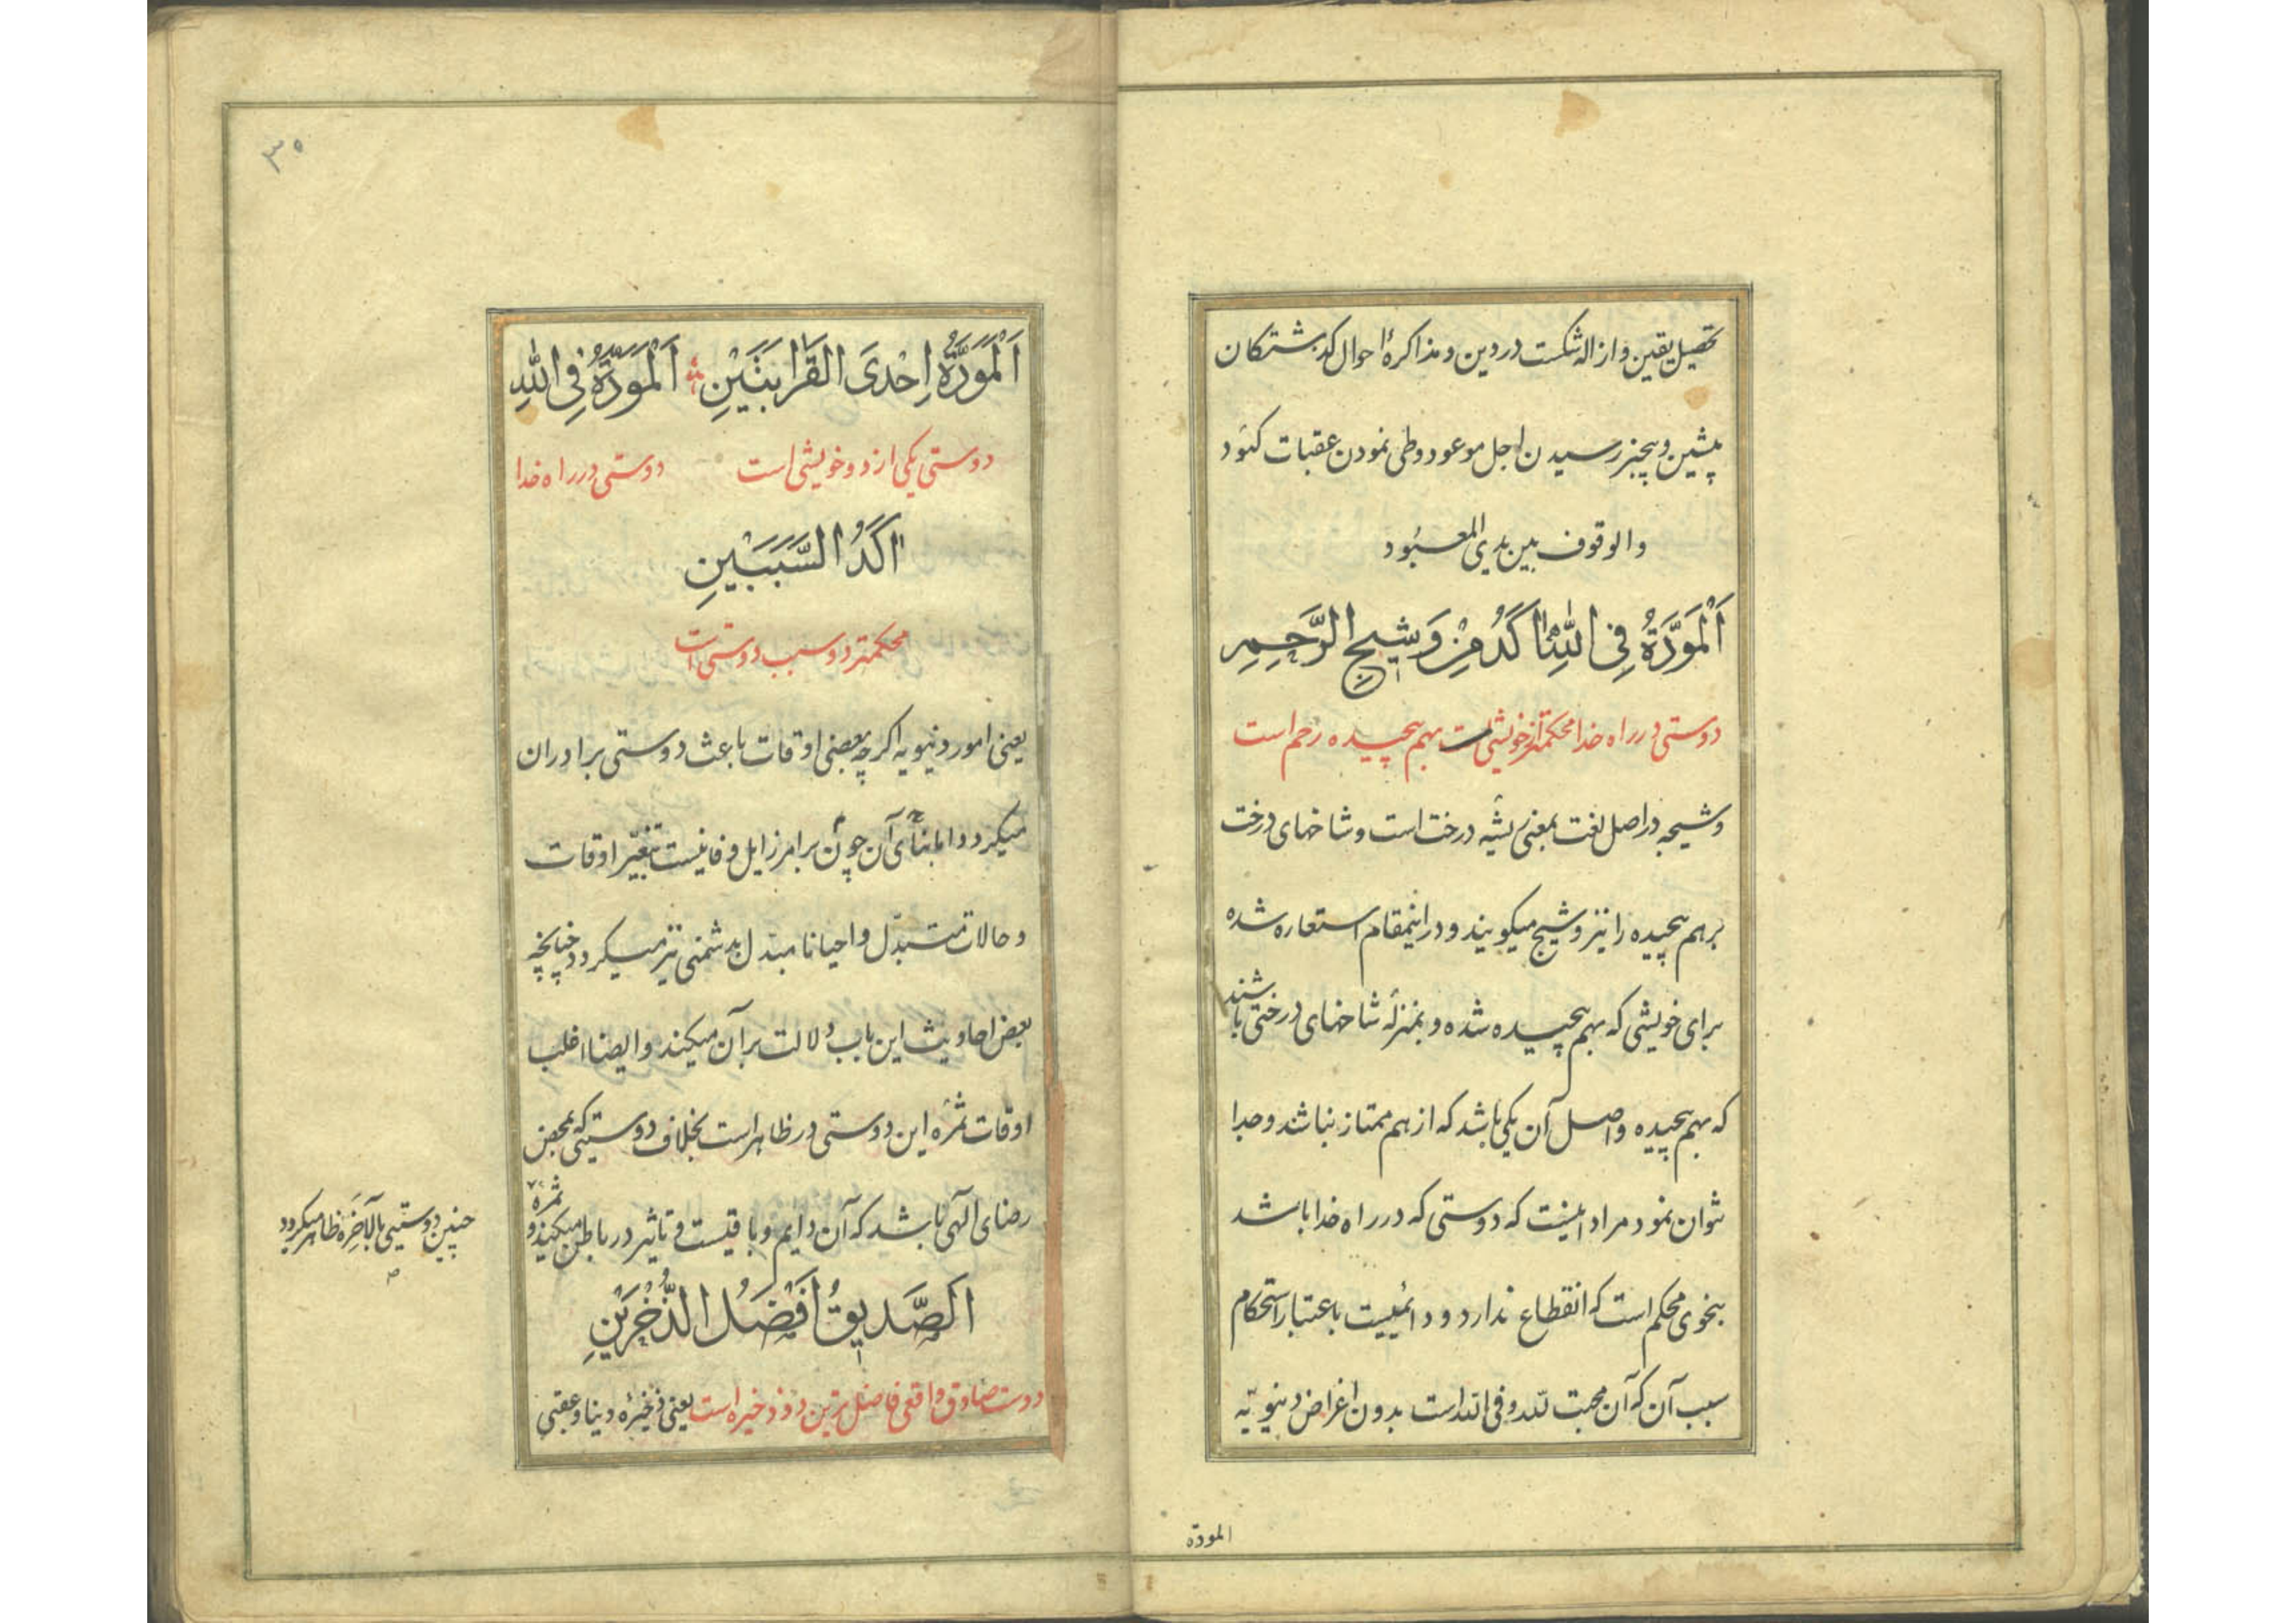 تحصیل یقین و ازاله شکست در دین و مذاکرهٔ احوال کدشتکان
پیشین و بیخبر رسیدن اجل موعود و طی نمودن عقبات کئود
والوقوف بین یدی المعبُود
اَلْمَوَدَّةُ فِی اللهِ اٰکَدُ مِنْ وَشیجِ الرَّحِمِ
دوستی در راه خدا محکمتر از خویشی است بهم پیچیده رحم است
وشیجه در اصل لغت بمعنی ریشه درخت است و شاخهای درخت
برهم پیچیده را نیز وشیج میکویند و در اینمقام استعاره شده
برای خویشی که بهم پیچیده شده و بمنزلهٔ شاخهای درختی باشند
که بهم پیچیده و اصل آن یکی باشد که از هم ممتاز نباشند و جدا
نتوان نمود مراد اینست که دوستی که در راه خدا باشد
بنحوی محکم است که انقطاع ندارد و دائمیست باعتبار استحکام
سبب آن که آن محبت لله و فی الله است بدون اغراض دنیویّه
المودة
۳۰
اَلْمَوَدَّةُ اِحْدَی القَرابَتَیْنِ اَلْمَوَدَّةُ فِی اللهِ
دوستی یکی از دو خویشی است دوستی در راه خدا
اٰکَدُ السَّبَبَیْنِ
محکمتر دو سبب دوستی است
یعنی امور دنیویه اکرچه بعضی اوقات باعث دوستی برادران
میکردد اما بنای آن چون بر امر زایل و فانیست بتغیّر اوقات
و حالات متبدّل و احیانا مبدل بدشمنی نیز میکردد چنانچه
بعض احادیث این باب دلالت بر آن میکند و ایضا اغلب
اوقات ثمرهٔ این دوستی در ظاهر است بخلاف دوستیکه بمحض
رضای الٓهی باشد که آن دایم و باقیست و تاثیر در باطن میکند و ثمره
چنین دوستیی بالآخَره ظاهر میکردد
الصَّدیقُ اَفْضَلُ الذُّخْرَیْنِ
دوست صادق واقعی فاضل ترین دو ذخیره است یعنی ذخیرهٔ دنیا و عقبی